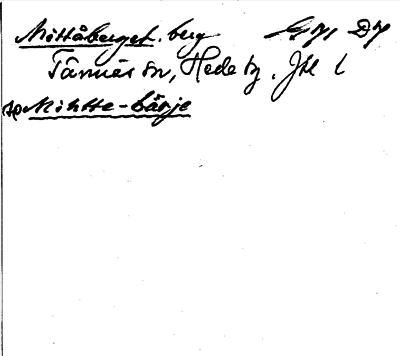 Mittåberget. berg
Tännäs sn, Hede tg. Jtl l
Mihtte-bärje